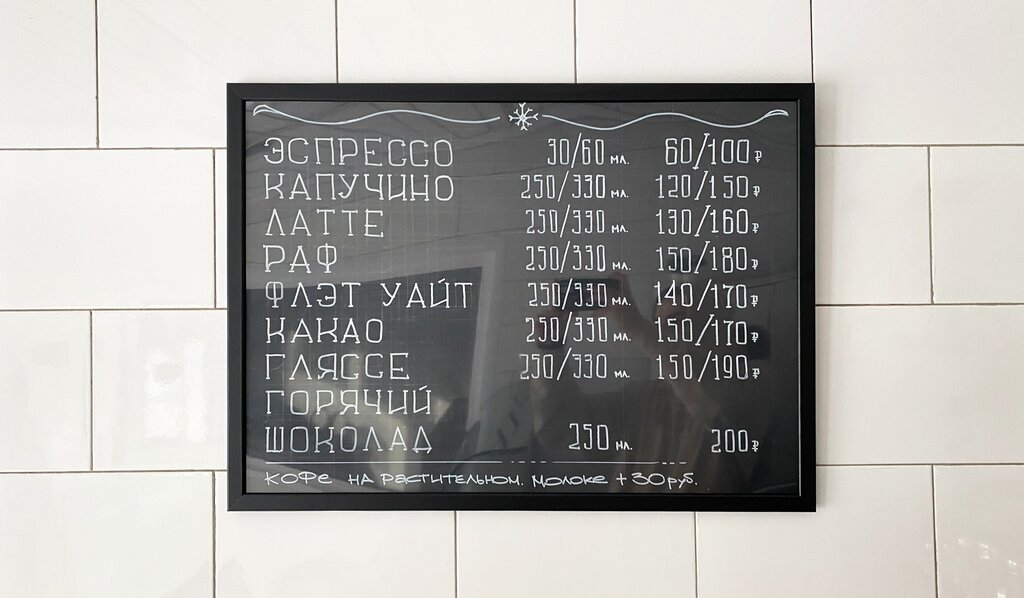 ЭСПРЕССО 30/60 мл. 60/100₽
КАПУЧИНО 250/330 мл. 120/150₽
ЛАТТЕ 250/330 мл. 130/160₽
РАФ 250/330 мл. 150/180₽
ФЛЭТ УАЙТ 250/330 мл. 140/170₽
КАКАО 250/330 мл. 150/170₽
ГЛЯССЕ 250/330 мл. 150/190₽
ГОРЯЧИЙ
ШОКОЛАД 250 мл. 200₽
кофе на растительном. молоке +30руб.